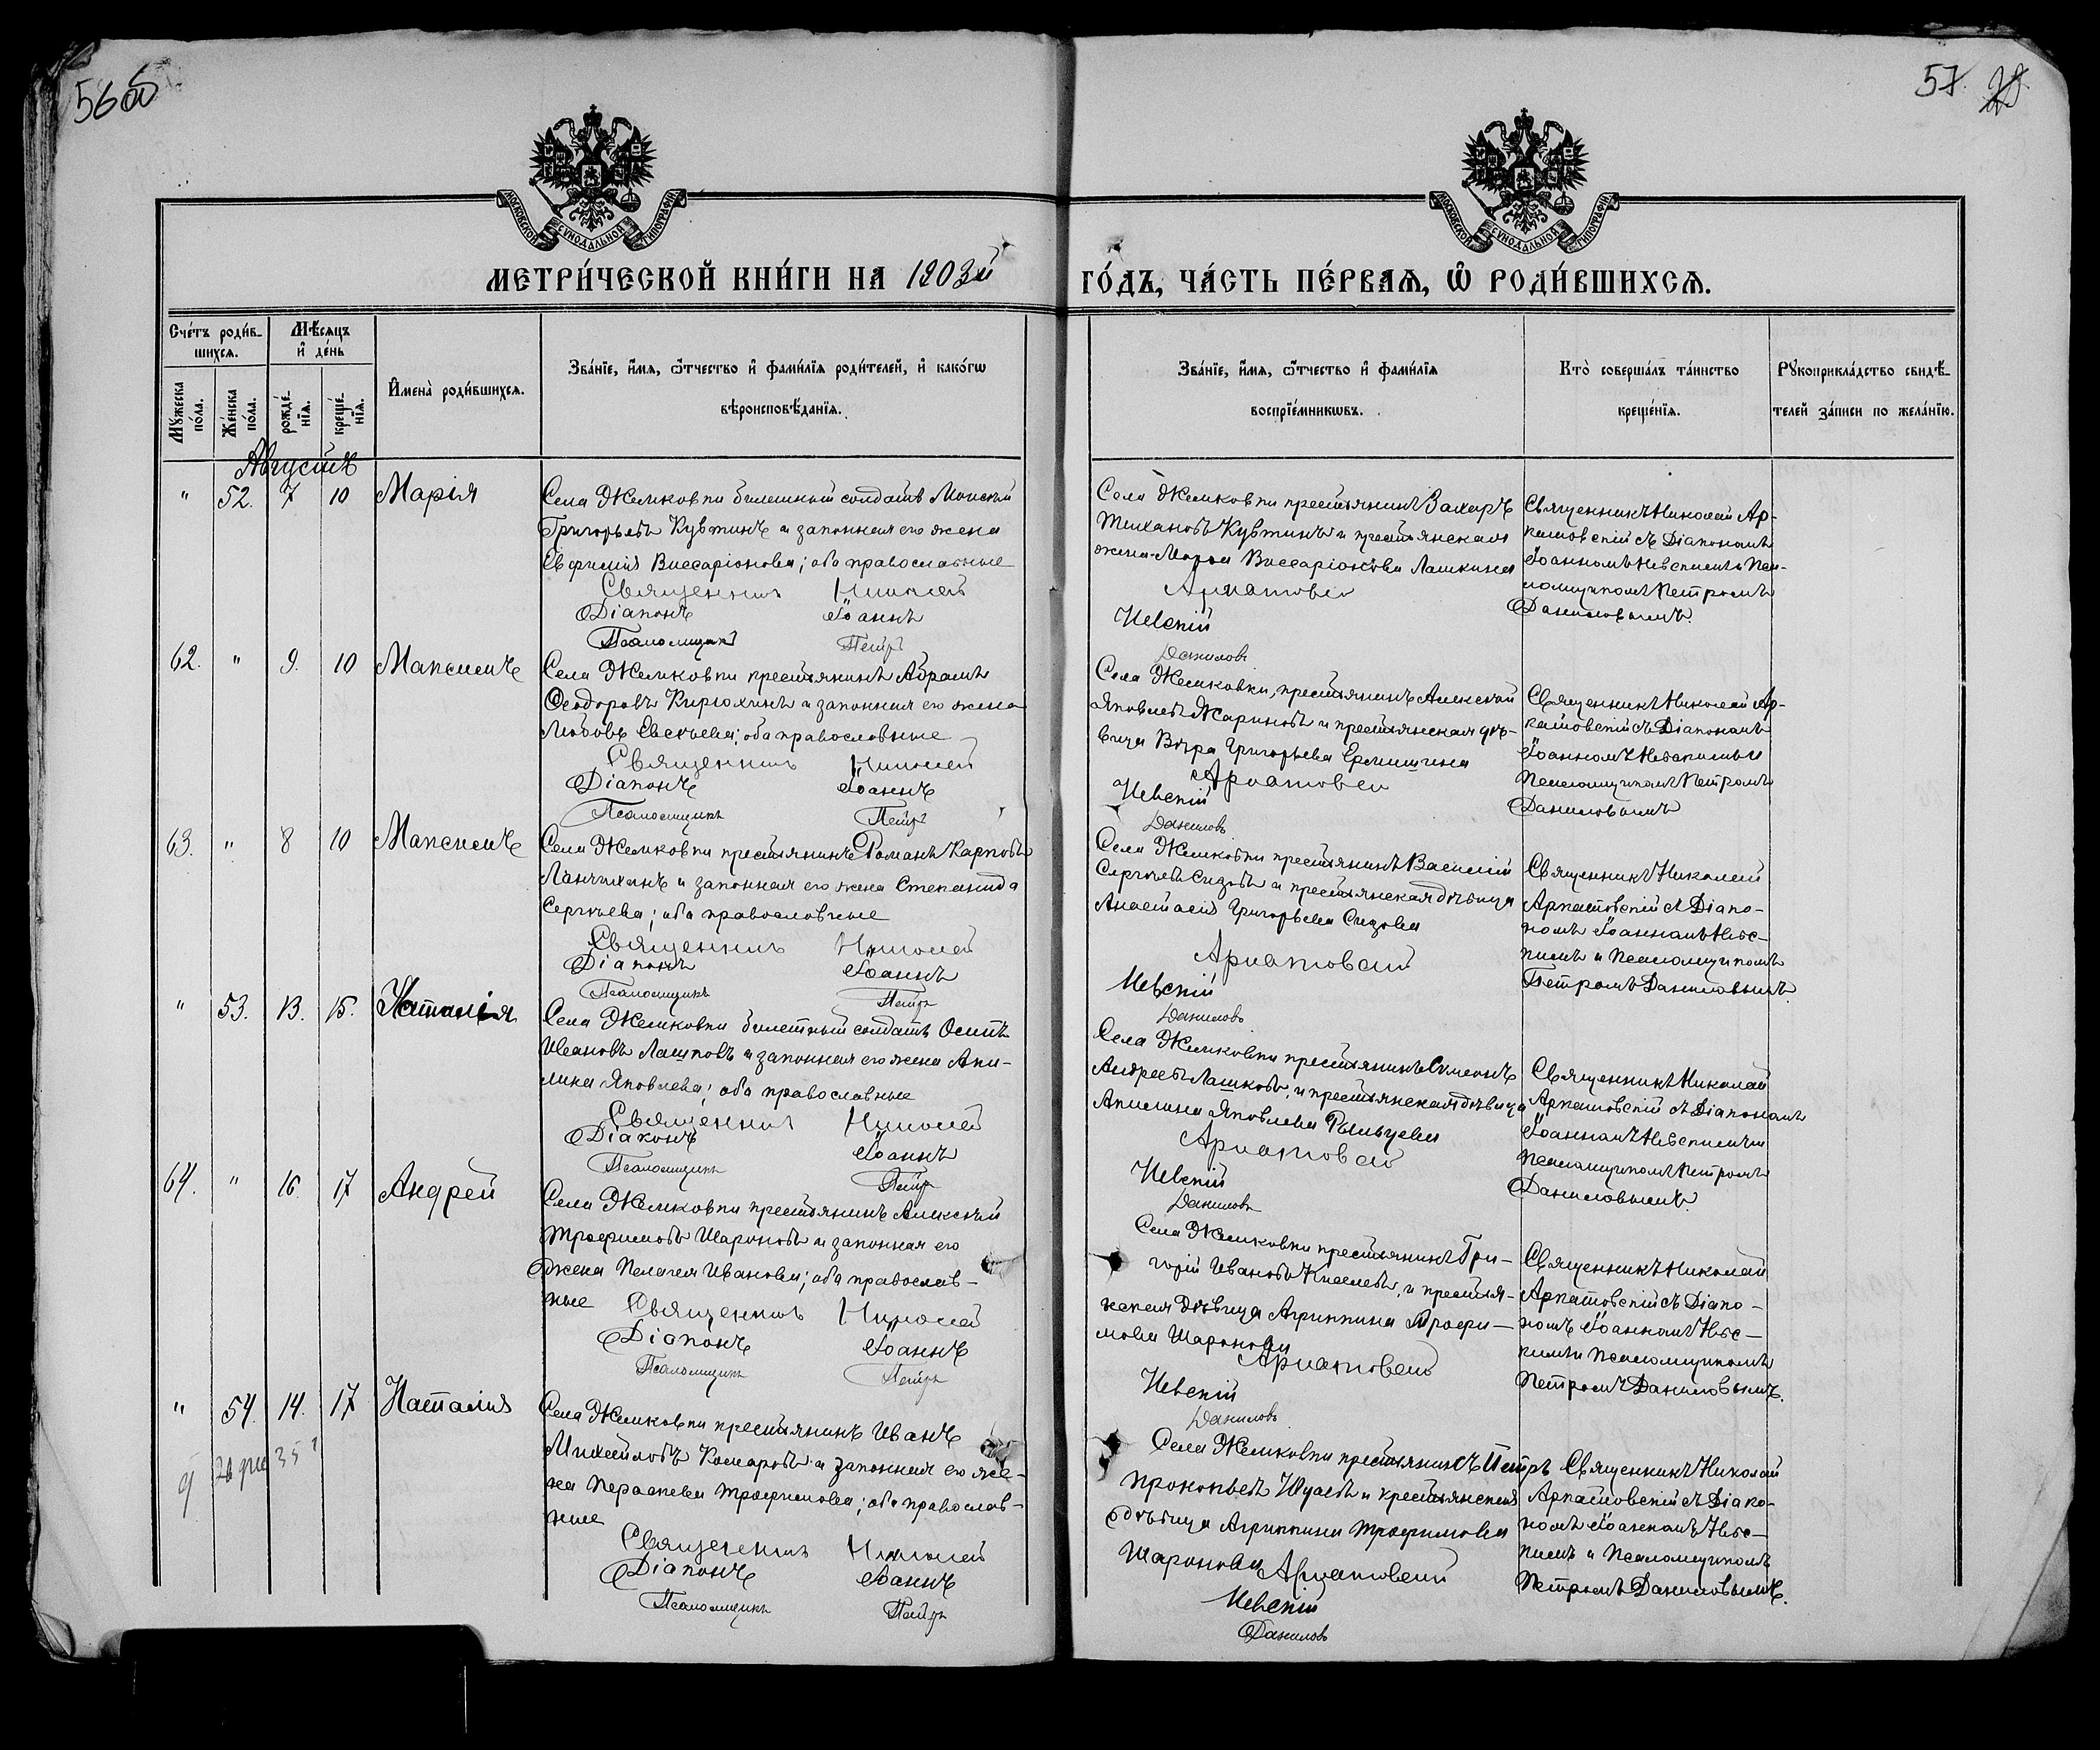 56об
57.
МОСКОВСКОЙ СѴНОДАЛЬНОЙ ТИПОГРАФІИ
МОСКОВСКОЙ СѴНОДАЛЬНОЙ ТИПОГРАФІИ
МЕТРИ́ЧЕСКОЙ КНИ́ГИ НА 1903й ГО́ДЪ, ЧА́СТЬ ПЕ́РВАѦ, Ѽ РОДИ́ВШИХСѦ.
Сче́тъ роди́в-
шихсѧ.
Мѣ́сѧцъ
и҆ де́нь
Мꙋ́жеска по́ла.
Же́нска по́ла.
рожде́-
нїѧ.
креще́-
нїѧ.
И҆мена̀ роди́вшихсѧ.
Зва́нїе, и҆́мѧ, ѻ҆́тчество и҆ фами́лїѧ роди́телей, и҆ како́гѡ
вѣроисповѣ́данїѧ.
Зва́нїе, и҆́мѧ, ѻ҆́тчество и҆ фами́лїѧ
воспрїе́мникѡвъ.
Кто̀ соверша́лъ та́инство
креще́нїѧ.
Рꙋкоприкла́дство свидѣ́-
телей за́писи по жела́нїю.
Августъ
" 52. 7 10 Марія
Села Жемковки билетный солдатъ Моисей
Григорьевъ Кувтинъ и законная его жена
Евфимія Виссаріонова; оба православные
Священникъ Николай
Діаконъ Іоаннъ
Псаломщикъ Петръ
Села Жемковки крестьянинъ Захаръ
Тихановъ Кувтинъ и крестьянская
жена Марья Виссаріонова Лашкина
Арнатовскій
Невскій
Данилов
Священникъ Николай Ар-
натовскій съ Діакономъ
Іоанномъ Невскимъ и Пса-
ломщикомъ Петромъ
Даниловымъ.
62. " 9. 10 Максимъ
Села Жемковки крестьянинъ Абрамъ
Ѳеодоровъ Кирюхинъ и законная его жена
Любовь Евсеьева; оба православные
Священникъ Николай
Діаконъ Іоаннъ
Псаломщикъ Петръ
Села Жемковки, крестьянинъ Алексей
Яковлевъ Жариновъ и крестьянская дѣ-
вица Вѣра Григорьева Ермишина
Арнатовскій
Невскій
Данилов
Священникъ Николай Ар-
натовскій съ Діакономъ
Іоанномъ Невскимъ и
Псаломщикомъ Петромъ
Даниловымъ
63. " 8 10 Максимъ
Села Жемковки крестьянинъ Романъ Карповъ
Ланчихинъ и законная его жена Степанида
Сергѣева; оба православные
Священникъ Николай
Діаконъ Іоаннъ
Псаломщикъ Петръ
Села Жемковки крестьянинъ Василій
Сергѣевъ Сизовъ и крестьянская дѣвица
Анастасія Григорьева Сизова
Арнатовскій
Невскій
Данилов
Священникъ Николай
Арнатовскій съ Діако-
номъ Іоанномъ Невс-
кимъ и Псаломщикомъ
Петромъ Даниловымъ.
" 53. 13. 15. Наталія
Села Жемковки билетный солдатъ Осипъ
Ивановъ Лашковъ и законная его жена Аки-
лина Яковлева; оба православные
Священникъ Николай
Діаконъ Іоаннъ
Псаломщикъ Петръ
Села Жемковки крестьянинъ Симеонъ
Андреевъ Лашковъ, и крестьянская дѣвица
Акилина Яковлева
Арнатовскій
Невскій
Данилов
Священникъ Николай
Арнатовскій съ Діакономъ
Іоанномъ Невскимъ и
Псаломщикомъ Петромъ
Даниловымъ.
64. " 16. 17 Андрей
Села Жемковки крестьянинъ Алексѣй
Трофимовъ Шароновъ и законная его
жена Пелагея Иванова; оба православ-
ные Священникъ Николай
Діаконъ Іоаннъ
Псаломщикъ Петръ
Села Жемковки крестьянинъ Гри-
горій Ивановъ Киселевъ, и крестья-
нская дѣвица Агриппина Трофи-
мова Шаронова
Арнатовскій
Невскій
Данилов
Священникъ Николай
Арнатовскій съ Діако-
номъ Іоанномъ Невс-
кимъ и Псаломщикомъ
Петромъ Даниловымъ.
" 54. 14. 17 Наталія
Села Жемковки крестьянинъ Иванъ
Михайловъ Комаровъ и законная его же-
на Параскева Трофимова; оба православ-
ные
Священникъ Николай
Діаконъ Іоаннъ
Псаломщикъ Петръ
Села Жемковки крестьянинъ Петръ
Прокопьевъ и крестьянская
дѣвица Агриппина Трофимова
Шаронова Арнатовскій
Невскій
Данилов
Священникъ Николай
Арнатовскій съ Діако-
номъ Іоанномъ Невс-
кимъ и Псаломщикомъ
Петромъ Даниловымъ.